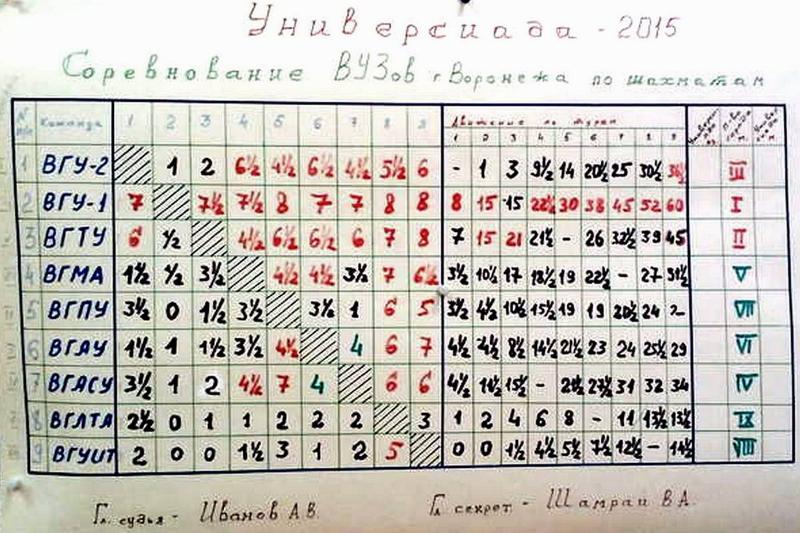 Универсиада - 2015
Соревнование ВУЗов г Воронежа по шахматам
Команда 1 2 3 4 5 6 7 8 9 Движение по турам
1 2 3 4 5 6 7 8 9
1 ВГУ-2 1 2 6½ 4½ 6½ 4½ 5½ 6 - 1 3 9½ 14 20½ 25 30½ 36½ III
2 ВГУ-1 7 7½ 7½ 8 7 7 8 8 8 15 15 22½ 30 38 45 52 60 I
3 ВГТУ 6 ½ 4½ 6½ 6½ 6 7 8 7 15 21 21½ - 26 32½ 39 45 II
4 ВГМА 1½ ½ 3½ 4½ 4½ 3½ 7 6½ 3½ 10½ 17 18½ 19 22½ - 27 31½ V
5 ВГПУ 3½ 0 1½ 3½ 3½ 1 6 5 3½ 4½ 10½ 15½ 19 19 20½ 24 2 VII
6 ВГАУ 1½ 1 1½ 3½ 4½ 4 6 7 4½ 4½ 8½ 14½ 21½ 23 24 25½ 29 VI
7 ВГАСУ 3½ 1 2 4½ 7 4 6 6 4½ 11½ 15½ - 21½ 27½ 31 32 34 IV
8 ВГЛТА 2½ 0 1 1 2 2 2 3 1 2 4 6 8 - 11 13½ 13½ IX
9 ВГУИТ 2 0 0 1½ 3 1 2 5 0 0 1½ 4½ 5½ 7½ 12½ - 14½ VIII
Гл. судья - Иванов А.В. Гл секрет. - Шамрай В.А.